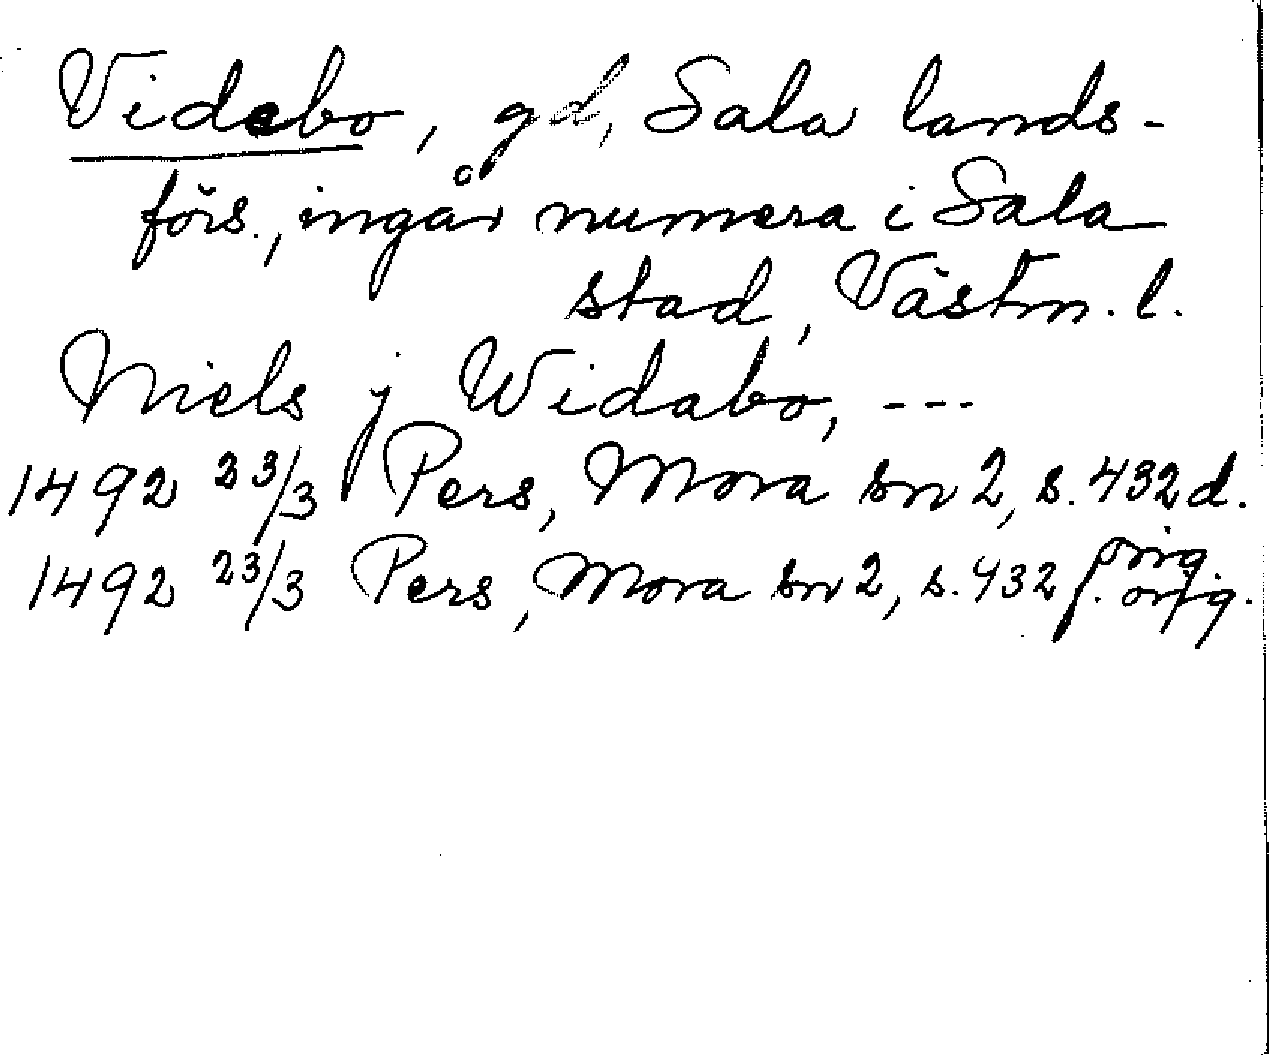 Videbo, gd, Sala lands-
förs., ingår numera i Sala
stad, Västm. l.
Niels j Widabo, ---
1492 23/3 Pers, Mora sn 2, s. 432 d.
orig
1492 23/3 Pers, Mora sn 2, s. 432 f. orig.